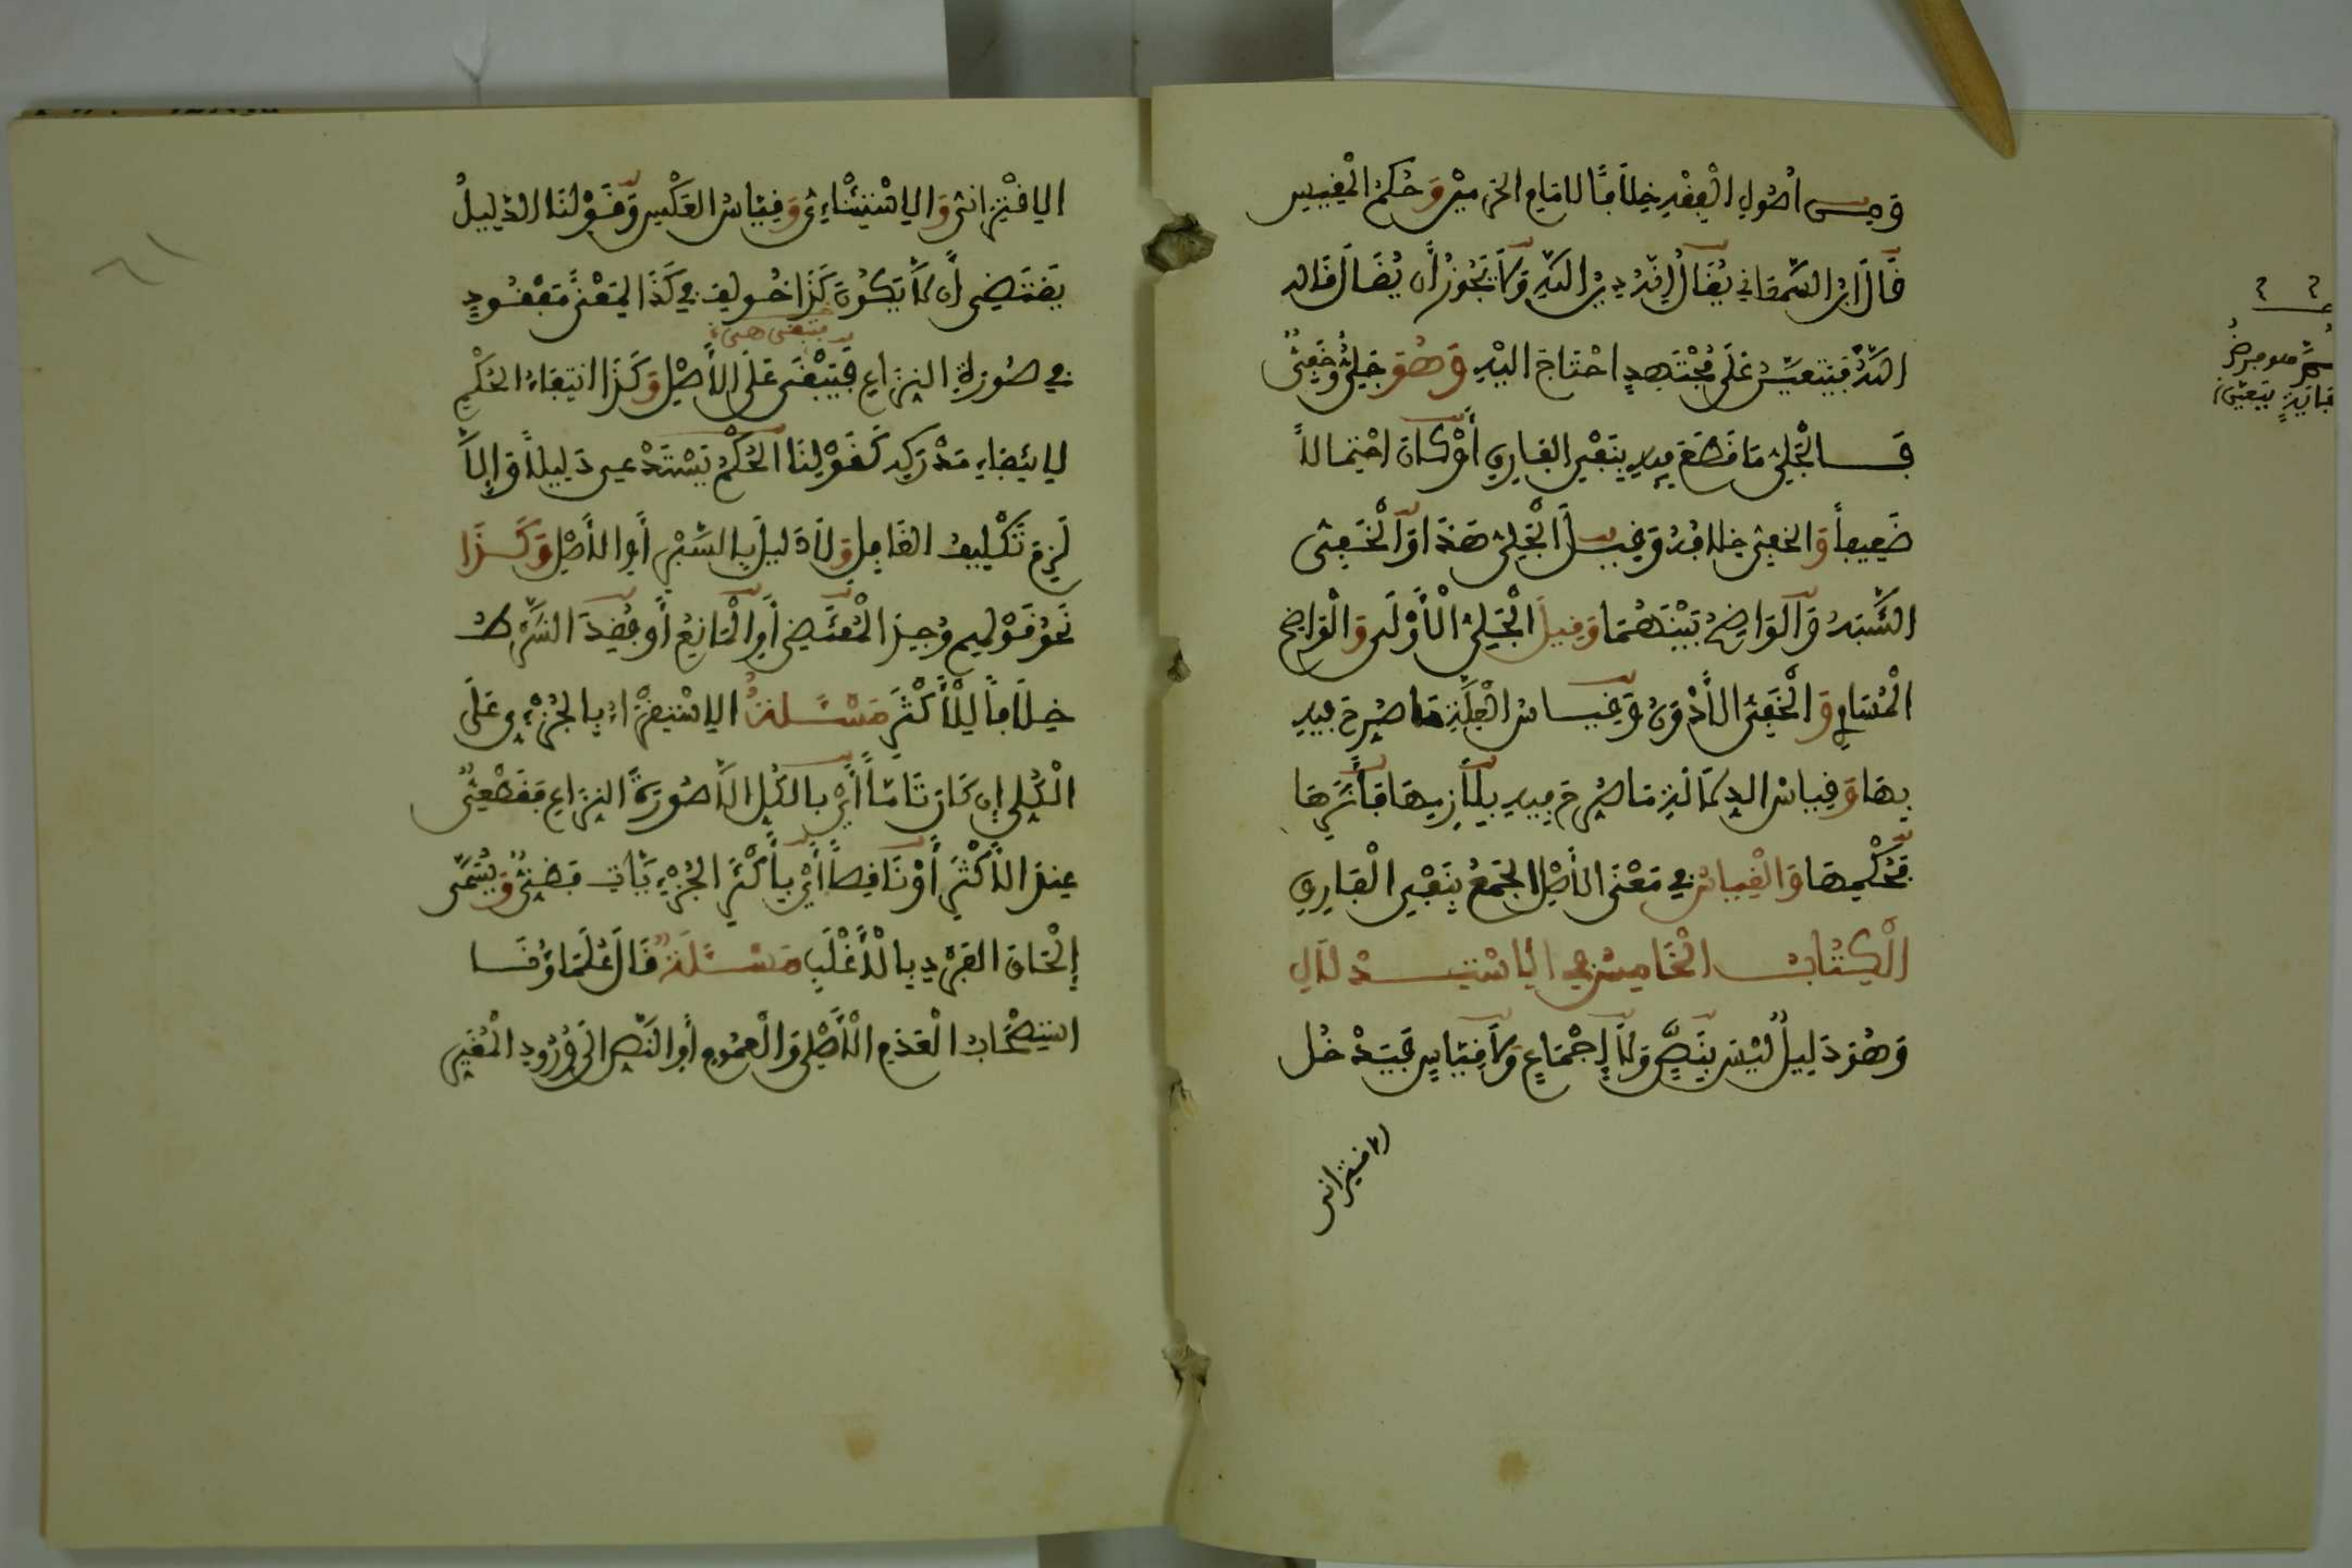 وَمِن اُصُولِ الْفِقْهِ خِلَافًا لِلامَامِ الحَرَمَيْنِ وَحُكْمُ الْمَقِيسِ
قَالَ ابْنُ السَّمْعَانِي يُقَالُ إِنَّهُ دِينُ اللَّهِ وَلَا يَجُوزُ أَن يُقَالَ قَالَه
اللَّهُ
فَيَتَعَيَّنُ عَلَى مُجْتَهِدٍ احْتَاجَ إلَيْهِ وَهُوَ جَلِيٌّ وَخَفِيٌّ
فَالْجَلِيُّ مَا قُطِعَ فِيهِ بِنَفْيِ الفَارِقِ أَوْ كَانَ احْتِمَالاً
ضَعِيفاً وَالخَفِيُّ خِلافُهُ وَقِيلَ الْجَلِيُّ هَذَا وَالْخَفِيُّ
الشَّبَهُ وَالْوَاضِحُ بَيْنَهُمَا وَقِيلَ الْجَلِيُّ الْأَوْلَى وَالْوَاضِحُ
الْمُسَاوِ وَالْخَفِيُّ الْأَدْوَنُ وَقِيَاسُ الْعِلَّةِ مَا صُرِّحَ فِيهِ
بِهَا وَقِيَاسُ الدِّلَالَةِ مَا صُرِّحَ فِيهِ بِلَازِمِهَا فَأَثَرِهَا
فَحُكْمِهَا وَالْقِيَاسُ فِي مَعْنَى الْأَصْلِ الجَمْعُ بِنَفْيِ الْفَارِقِ
الْكِتَابُ الْخَامِسُ فِي الِاسْتِدْلَالِ
وَهُوَ دَلِيلٌ لَيْسَ بِنَصٍّ وَلَا إِجْمَاعٍ وَلَا قِيَاسٍ فَيَدْخُلُ
الاقتراني
الِاقْتِرَانِيُّ وَالِاسْتِثْنَاءِيُّ وَقِيَاسُ العَكْسِ وَقَوْلُنَا الدَّلِيلُ
يَقْتَضِي أَن لَا يَكُونَ كَذَا خُولِفَ فِي كَذَا لِمَعْنًى مَفْقُودٍ
فِي صُورَةِ النِّزَاعِ فَيَبْقَى عَلَى الْأَصْلِ وَكَذَا انْتِفَاءُ الحُكْمِ
لِانْتِفَاءِ مَدْرَكِهِ كَقَوْلِنَا الْحُكْمُ يَسْتَدْعِي دَلِيلاً وَإِلَّا
لَزِمَ تَكْلِيفُ الغَافِلِ وَلَا دَلِيلَ بِالسَّبْرِ أَوِ الْأَصْلِ وَكَذَا
نَحْوُ قَوْلِهِم وُجِدَ الْمُقْتَضِي أَوِ الْمَانِعُ أَوْ فُقِدَ الشَّرْطُ
خِلَافاً لِلْأَكْثَرِ مَسْئَلَةٌ الِاسْتِقْرَاءُ بِالْجُزْءِي عَلَى
الْكُلِّي إِن كَانَ تَامّاً أَيْ بِالكُلِّ إِلَّا صُورَةَ النِّزَاعِ فَقَطْعِيٌّ
عِنْدَ الْأَكْثَرِ أَوْ نَاقِصاً أَيْ بِأَكْثَرِ الْجُزْءِيَّاتِ فَظَنِّيٌّ وَيُسَمَّى
إِلْحَاقَ الفَرْدِ بِالْأَغْلَبِ مَسْئَلَةٌ قَالَ عُلَمَاؤُنَا
اسْتِصْحَابُ الْعَدَمِ الْأَصْلِي وَالْعُمُومِ أَوِ النَّصِّ إِلَى وُرُودِ الْمُغَيِّرِ